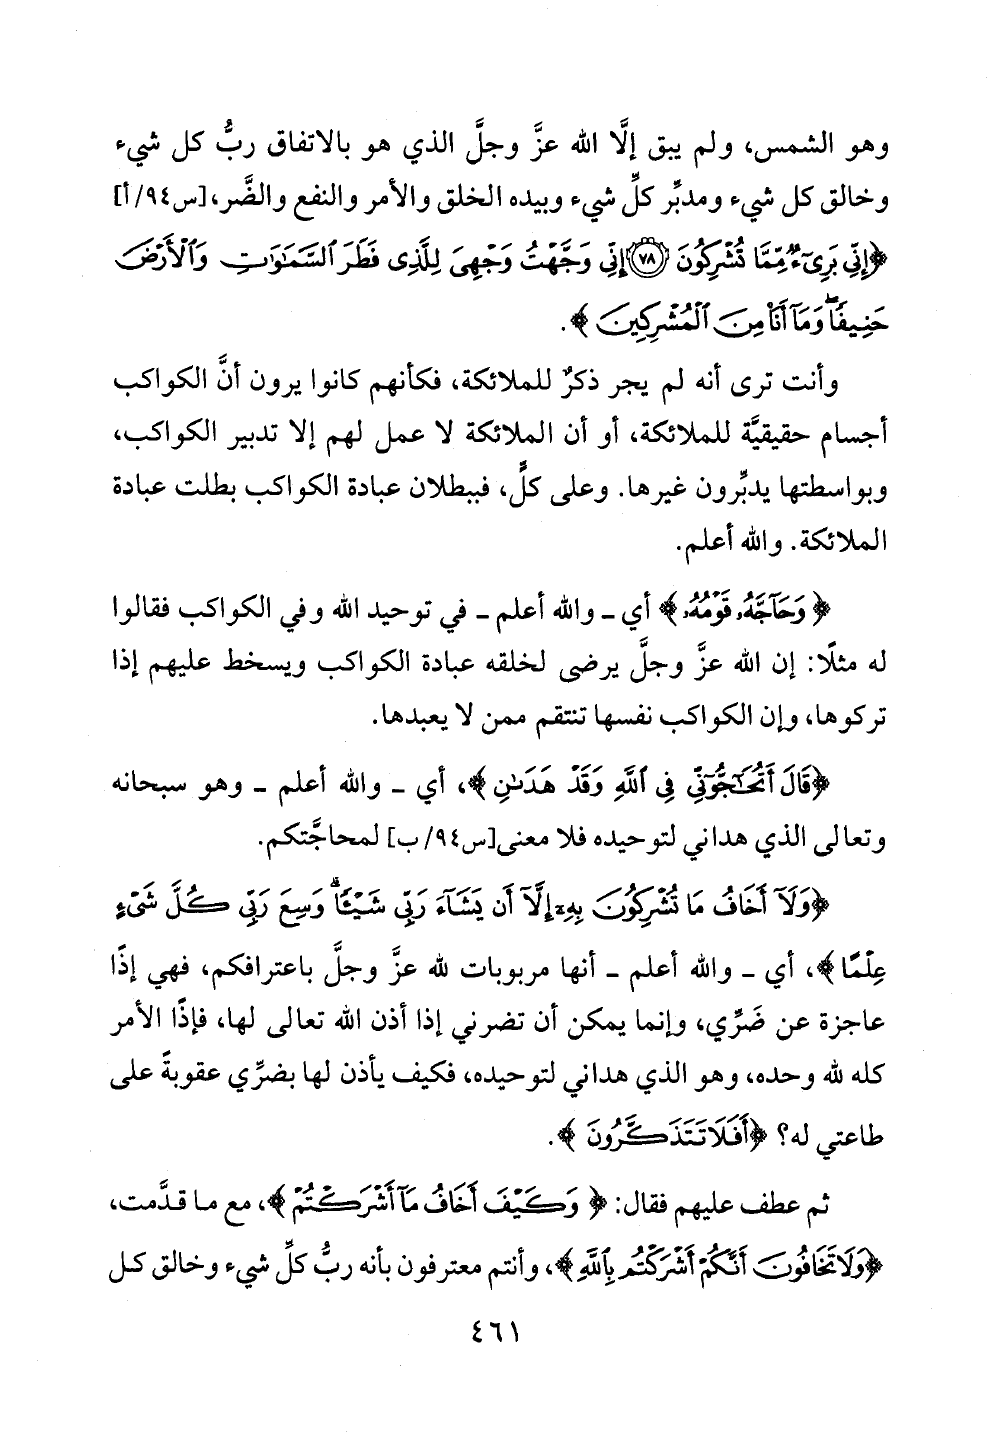 وهو الشمس، ولم يبق إلَّا الله عزَّ وجلَّ الذي هو بالاتفاق ربُّ كل شيء
وخالق كل شيء ومدبِّر كلِّ شيء وبيده الخلق والأمر والنفع والضَّر، [س٩٤/ أ]
﴿إِنِّي بَرِيٓءٌ مِّمَّا تُشْرِكُونَ ﴿٧٨﴾ إِنِّي وَجَّهْتُ وَجْهِيَ لِلَّذِي فَطَرَ ٱلسَّمَٰوَٰتِ وَٱلْأَرْضَ
حَنِيفًا ۖ وَمَآ أَنَا۠ مِنَ ٱلْمُشْرِكِينَ﴾.
وأنت ترى أنه لم يجر ذكرٌ للملائكة، فكأنهم كانوا يرون أنَّ الكواكب
أجسام حقيقيَّة للملائكة، أو أن الملائكة لا عمل لهم إلا تدبير الكواكب،
وبواسطتها يدبِّرون غيرها. وعلى كلٍّ، فببطلان عبادة الكواكب بطلت عبادة
الملائكة. والله أعلم.
﴿وَحَآجَّهُۥ قَوْمُهُۥ﴾ أي ـ والله أعلم ـ في توحيد الله وفي الكواكب فقالوا
له مثلًا: إن الله عزَّ وجلَّ يرضى لخلقه عبادة الكواكب ويسخط عليهم إذا
تركوها، وإن الكواكب نفسها تنتقم ممن لا يعبدها.
﴿قَالَ أَتُحَٰٓجُّوٓنِّي فِي ٱللَّهِ وَقَدْ هَدَىٰنِ﴾، أي ـ والله أعلم ـ وهو سبحانه
وتعالى الذي هداني لتوحيده فلا معنى [س٩٤/ ب] لمحاجَّتكم.
﴿وَلَآ أَخَافُ مَا تُشْرِكُونَ بِهِۦٓ إِلَّآ أَن يَشَآءَ رَبِّي شَيْـًٔا ۗ وَسِعَ رَبِّي كُلَّ شَيْءٍ
عِلْمًا﴾، أي ـ والله أعلم ـ أنها مربوبات لله عزَّ وجلَّ باعترافكم، فهي إذًا
عاجزة عن ضَرِّي، وإنما يمكن أن تضرني إذا أذن الله تعالى لها، فإذًا الأمر
كله لله وحده، وهو الذي هداني لتوحيده، فكيف يأذن لها بضرِّي عقوبةً على
طاعتي له؟ ﴿أَفَلَا تَتَذَكَّرُونَ﴾.
ثم عطف عليهم فقال: ﴿وَكَيْفَ أَخَافُ مَآ أَشْرَكْتُمْ﴾، مع ما قدَّمت،
﴿وَلَا تَخَافُونَ أَنَّكُمْ أَشْرَكْتُم بِٱللَّهِ﴾، وأنتم معترفون بأنه ربُّ كلِّ شيء وخالق كل
٤٦١